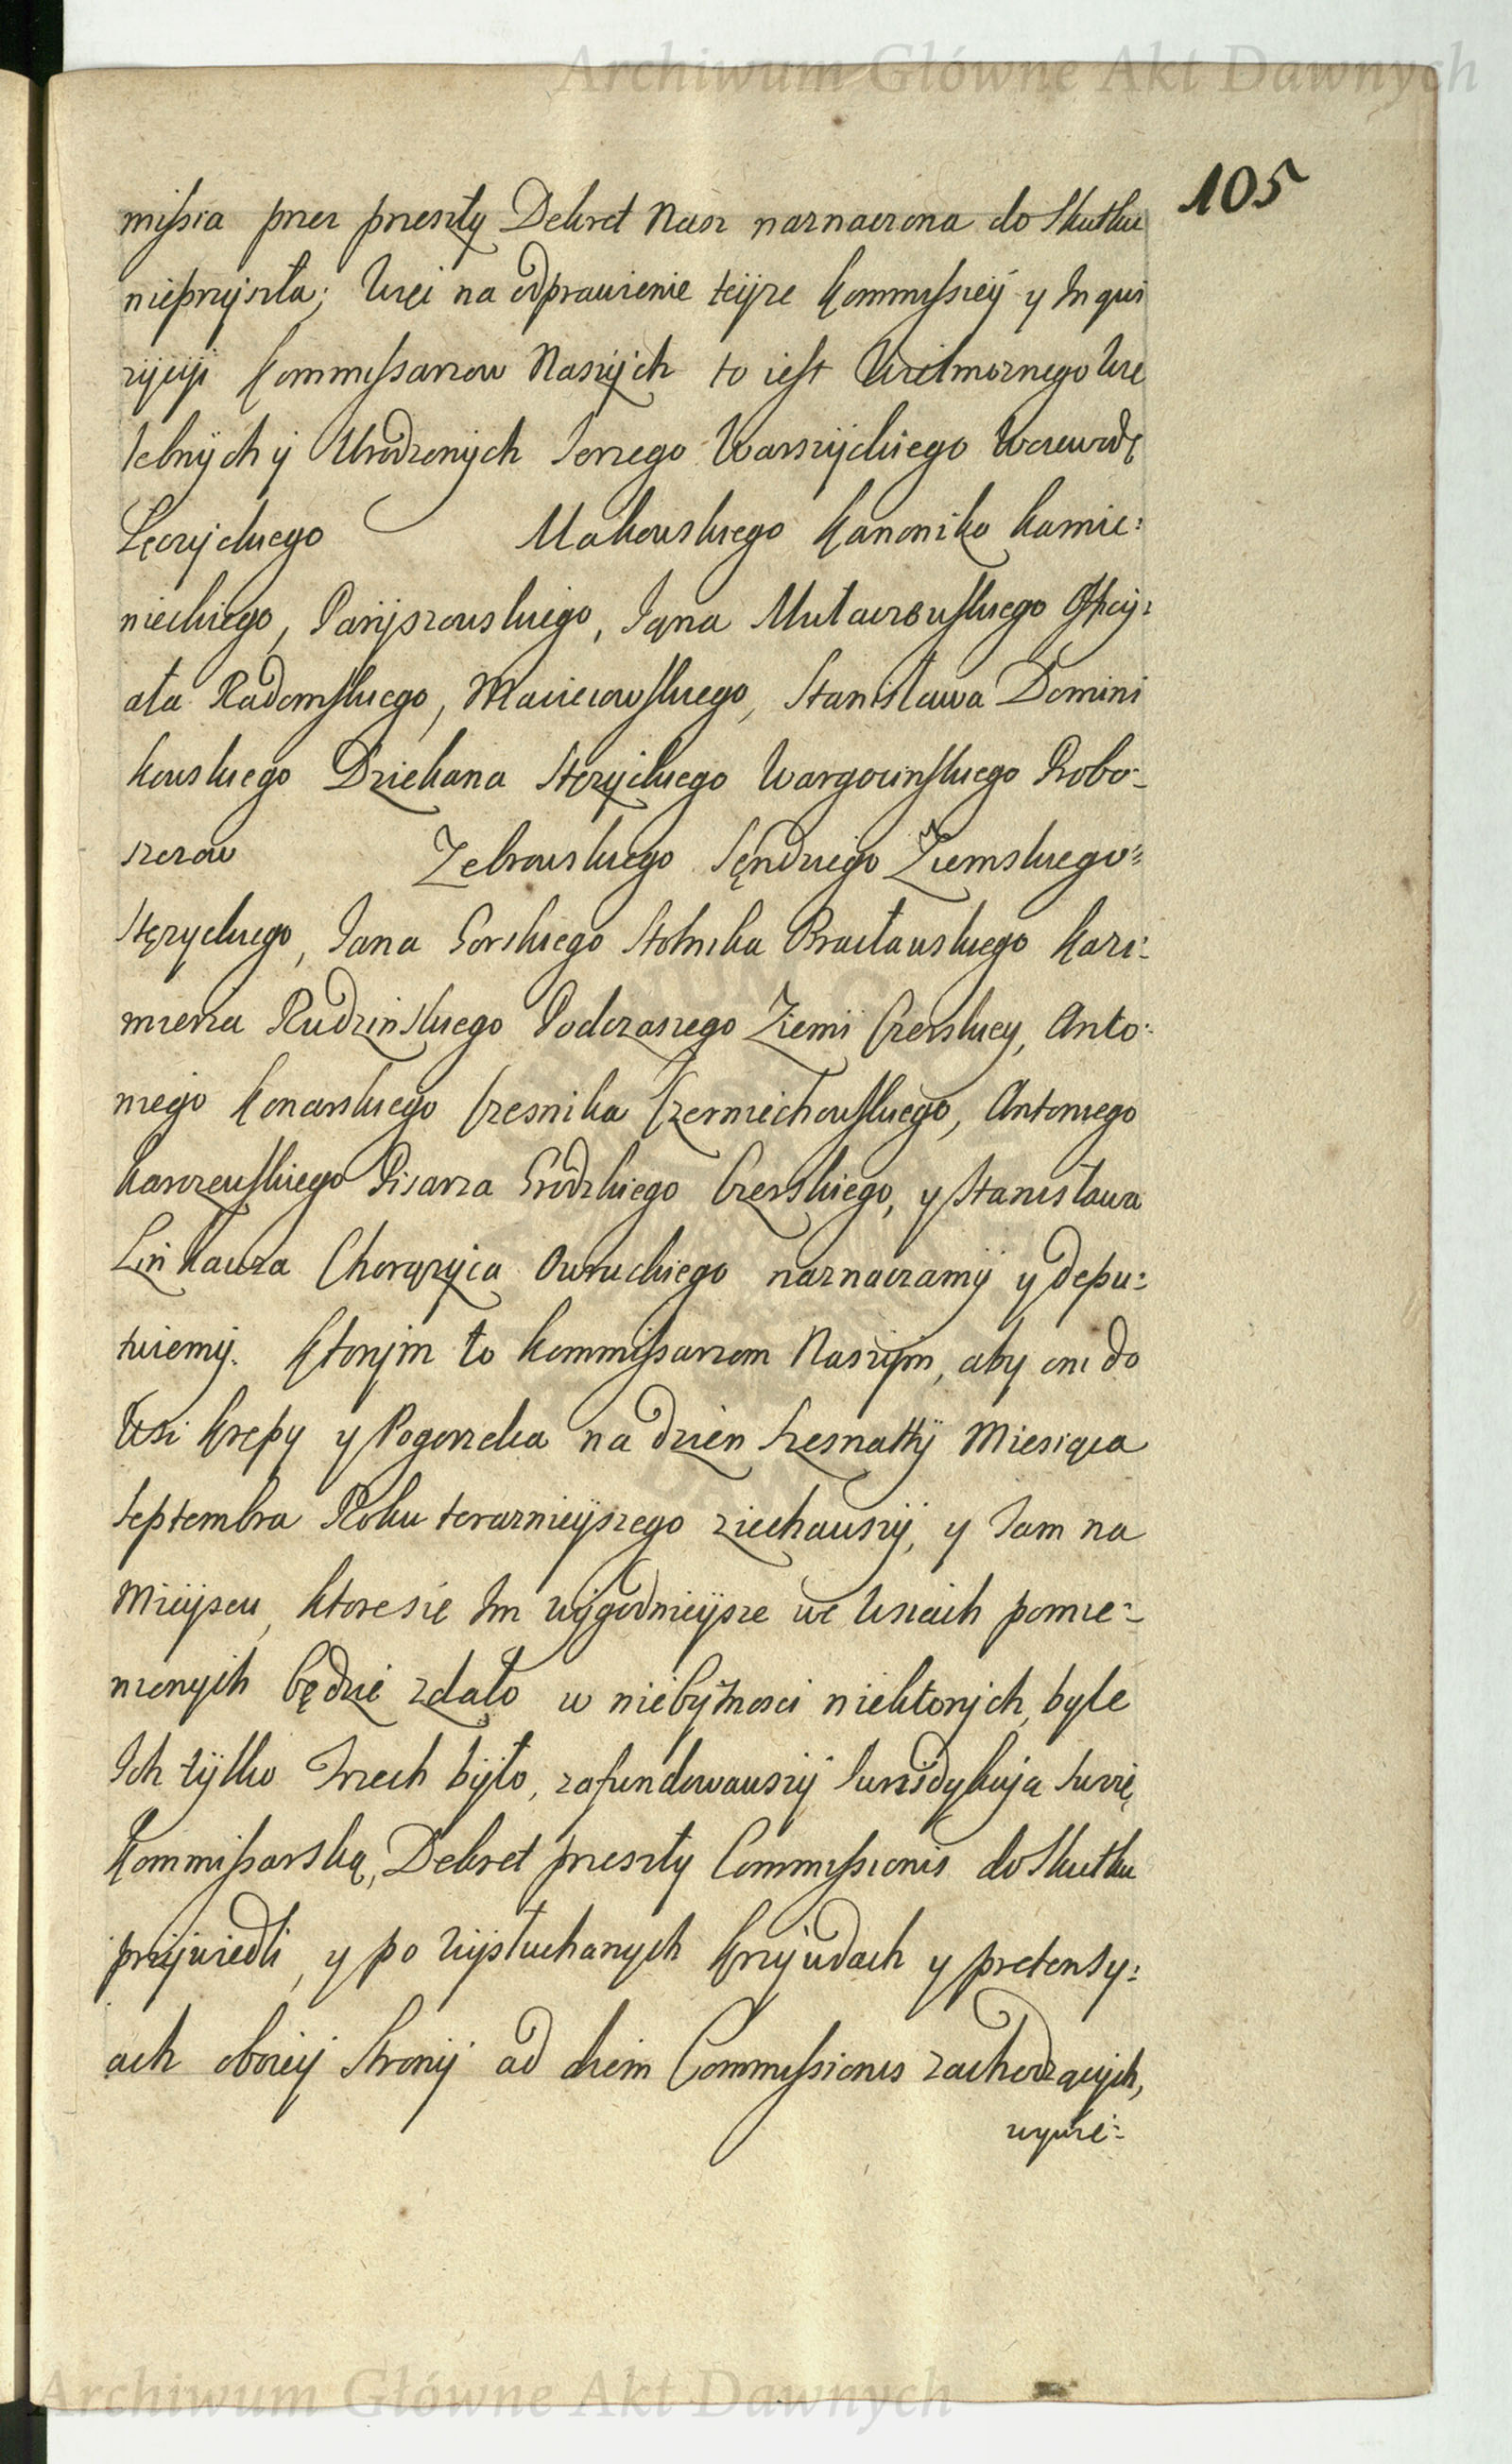 Archiwum Główne Akt Dawnych
105
missia przez przeszły Dekret Nasz naznaczona do skutku
nieprzyszła; Więc na odprawienie teyze Kommissiey y Inqui
zycyi Kommissarzow Naszych to iest Wielmoznego Wie
lebnych y Urodzonych Jerzego Warszyckiego Woiewodę
Łęczyckiego Makowskiego Kanonika Kamie:
nieckiego, Paryszowskiego, Jana Officy:
ała Radomskiego, Macieiowskiego, Stanisława Domini
kowskiego Dziekana Stęzyckiego Wargocinskiego Probo-
szczow Zebrowskiego Sęndziego Ziemskiego
Stęzyckiego, Jana Gorskiego Stolnika Bracławskiego Kazi:
mierza Rudzinskiego Podczaszego Ziemi Czerskiey, Anto:
niego Konarskiego Czesnika Czerniechowskiego, Antoniego
Karczewskiego Pisarza Grodzkiego Czerskiego, y Stanisława
Linkauza Chorązyca Owruckiego naznaczamy y depu:
tuiemy. Ktorym to Kommissarzom Naszym, aby oni do
Wsi Krepy y Pogorzelca na dzien Szesnasty Miesiąca
Septembra Roku teraznieyszego ziechawszy, y Tam na
Mieyscu, ktore sie Im wygodnieysze we Wsiach pomie:
nionych będzie zdało w niebytnosci niektorych, byle
Ich tylko Trzech było, zafundowawszy Jurisdykcją Swoię
Kommissarską, Dekret przeszły Commissionis do skutku
przywiedli, y po wysłuchanych Krzywdach y pretensy:
ach oboiey Strony ad diem Commissionis zachodzących,
wymie:
Archiwum Główne Akt Dawnych